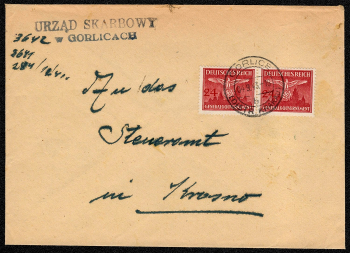 URZĄD SKARBOWY
w GORLICACH
3642
3641
DEUTSCHES REICH DEUTSCHES REICH
24
GENERALGOUVERNEMENT GENERALGOUVERNEMENT
GORLICE
An das
Steueramt
in Krosno